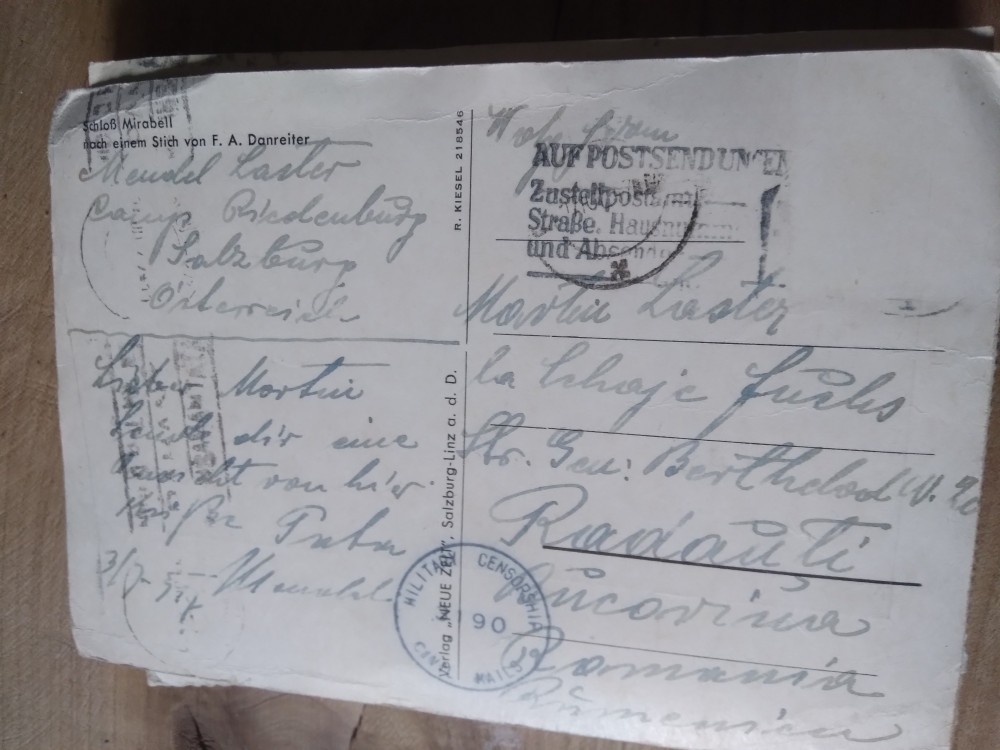 Schloß Mirabell
nach einem Stich von F. A. Danreiter
Mendel Laster
Camp Riedenburg
Salzburg
Österreich
Lieber Martin
Sende dir eine
Ansicht von hier
Papa
Mendel
R. KIESEL 218546
Verlag „NEUE ZEIT", Salzburg-Linz a. d. D.
AUF POSTSENDUNGEN
Zustellpostamt
Straße, Hausnummer
und Absender
Martin Laster
la Schaje Fuchs
Str. Gen: Berthelod
Radauti
Bucovina
Romania
Rumenien
MILITARY CENSORSHIP
90
CIVIL MAILS